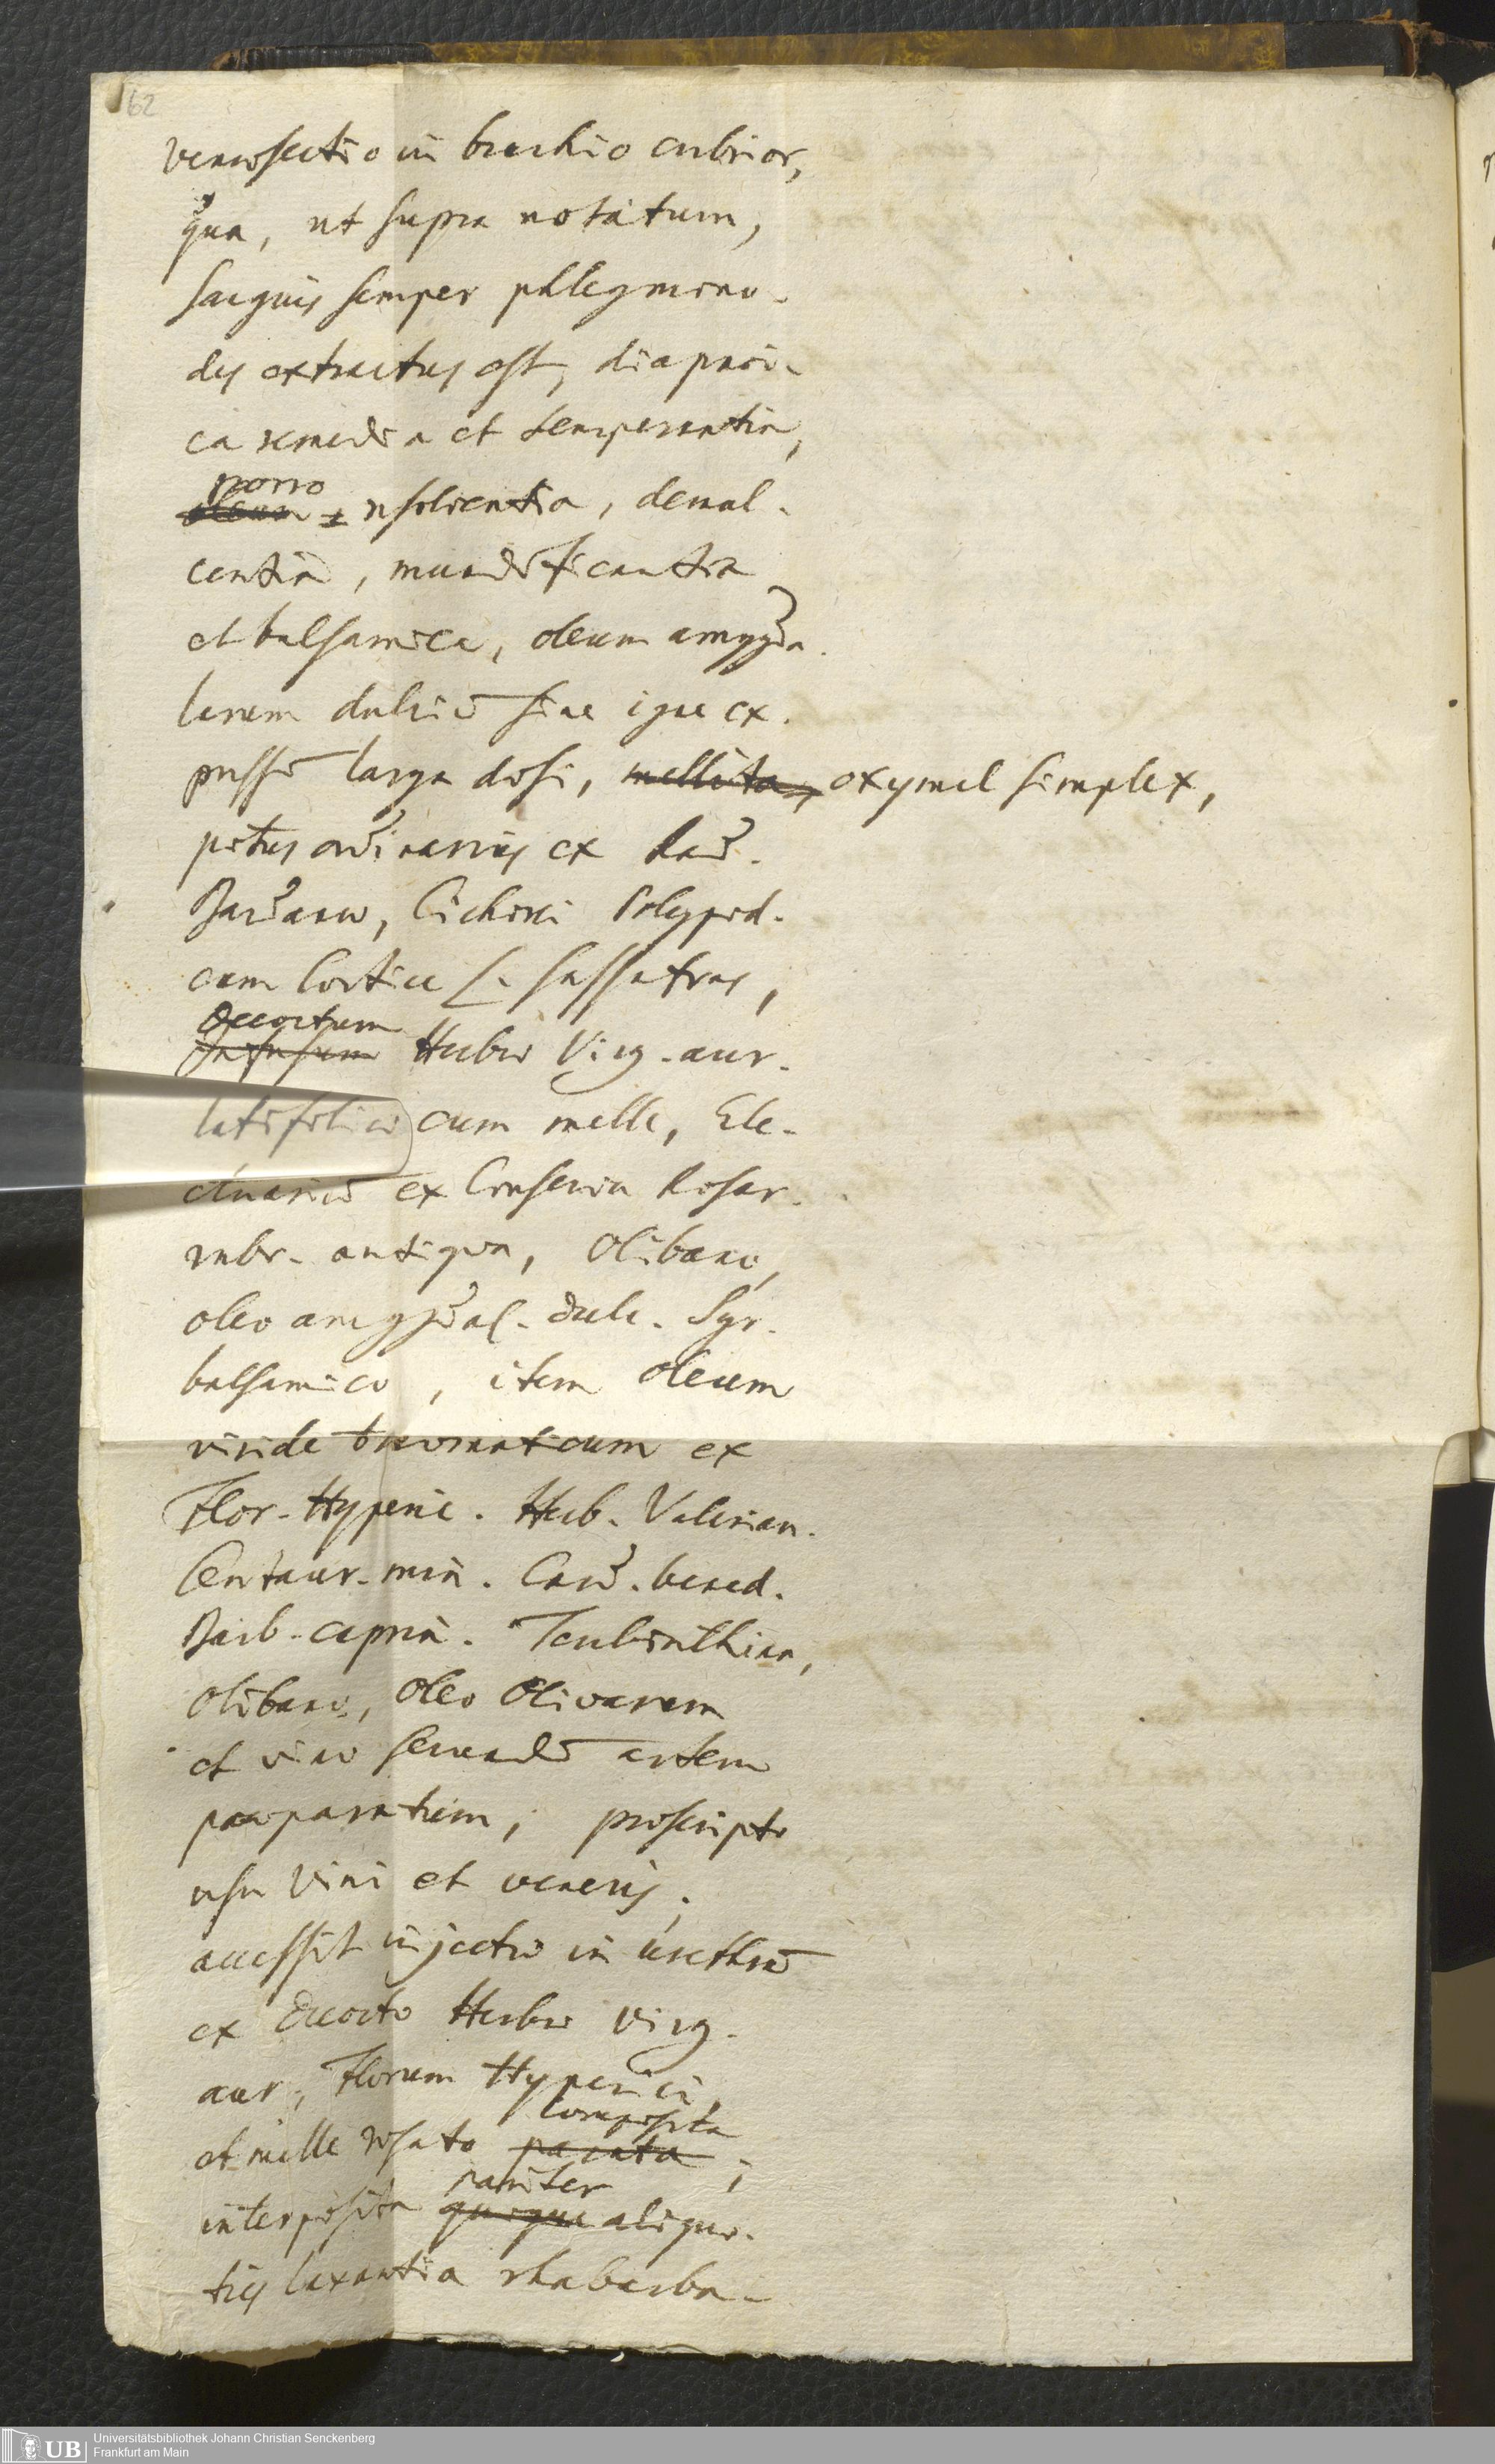 62
venæsectio in brachio crebrior,
qua, ut supra notatum,
sanguis semper phlegmono-
des extractus est, diapnoi-
ca remedia et temperantia,
porro
oleum resolventia, demul-
centia, mundificantia
et balsamica, oleum amygda-
larum dulciū sine igne ex-
pressū larga dosi, mellita, oxymel simplex,
potus ordinarius ex Rad.
Bardanæ, Cichorei Polypod.
cum Cortice L. Sassafras,
Decoctum
Infusum Herbæ Virg. aur.
latifoliæ cum melle, Ele-
ctuariū ex Conserva Rosar.
rubr. antiqua, Olibano,
oleo amygdal. dulc. Syr.
balsamico, item oleum
viride traumaticum ex
Flor. Hyperic. Herb. Valerian.
Centaur. min. Card. bened.
Barb. caprin. Terebinthina,
Olibano, Oleo Olivarum
et vino secundū artem
præparatum; proscripto
usu Vini et veneris;
accessit injectio in urethrā
ex Decocto Herbæ Virg.
aur. Florum Hyperici,
composita
et melle rosato parata;
pariter
interposita quoque aliquo-
ties laxantia rhabarba-
UB
Universitätsbibliothek Johann Christian Senckenberg
Frankfurt am Main